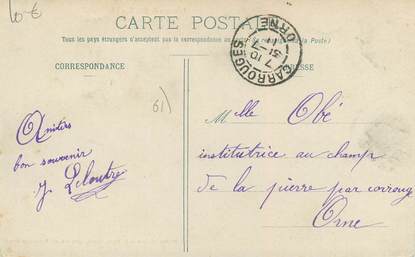 10 €
CARTE POSTALE
Tous les pays étrangers n'acceptent pas la correspondance au
la Poste)
CORRESPONDANCE
ADRESSE
CARROUGES
ORNE
7 10
31 - 7
61)
Amitiés
bon souvenir
J Leloutre
Melle Obé
institutrice au champ
de la pierre par carrouge
Orne